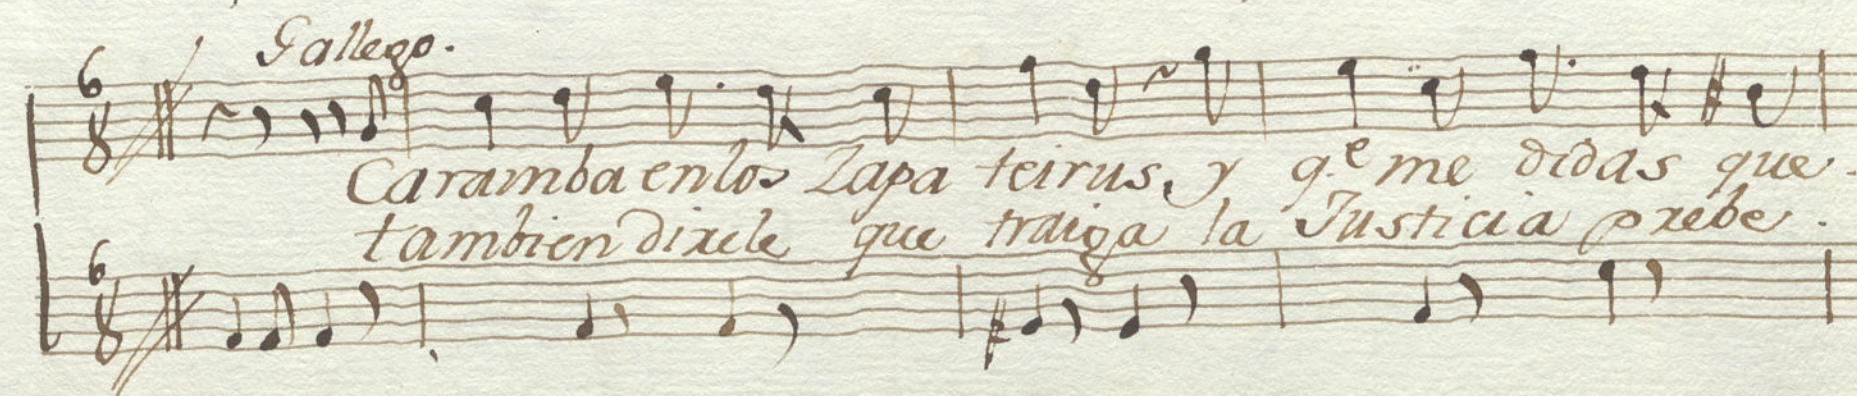 Gallego.
6
8
Caramba en los Zapateirus, y q.e me didas que
tambien dixele que traiga la Justicia prebe
6
8